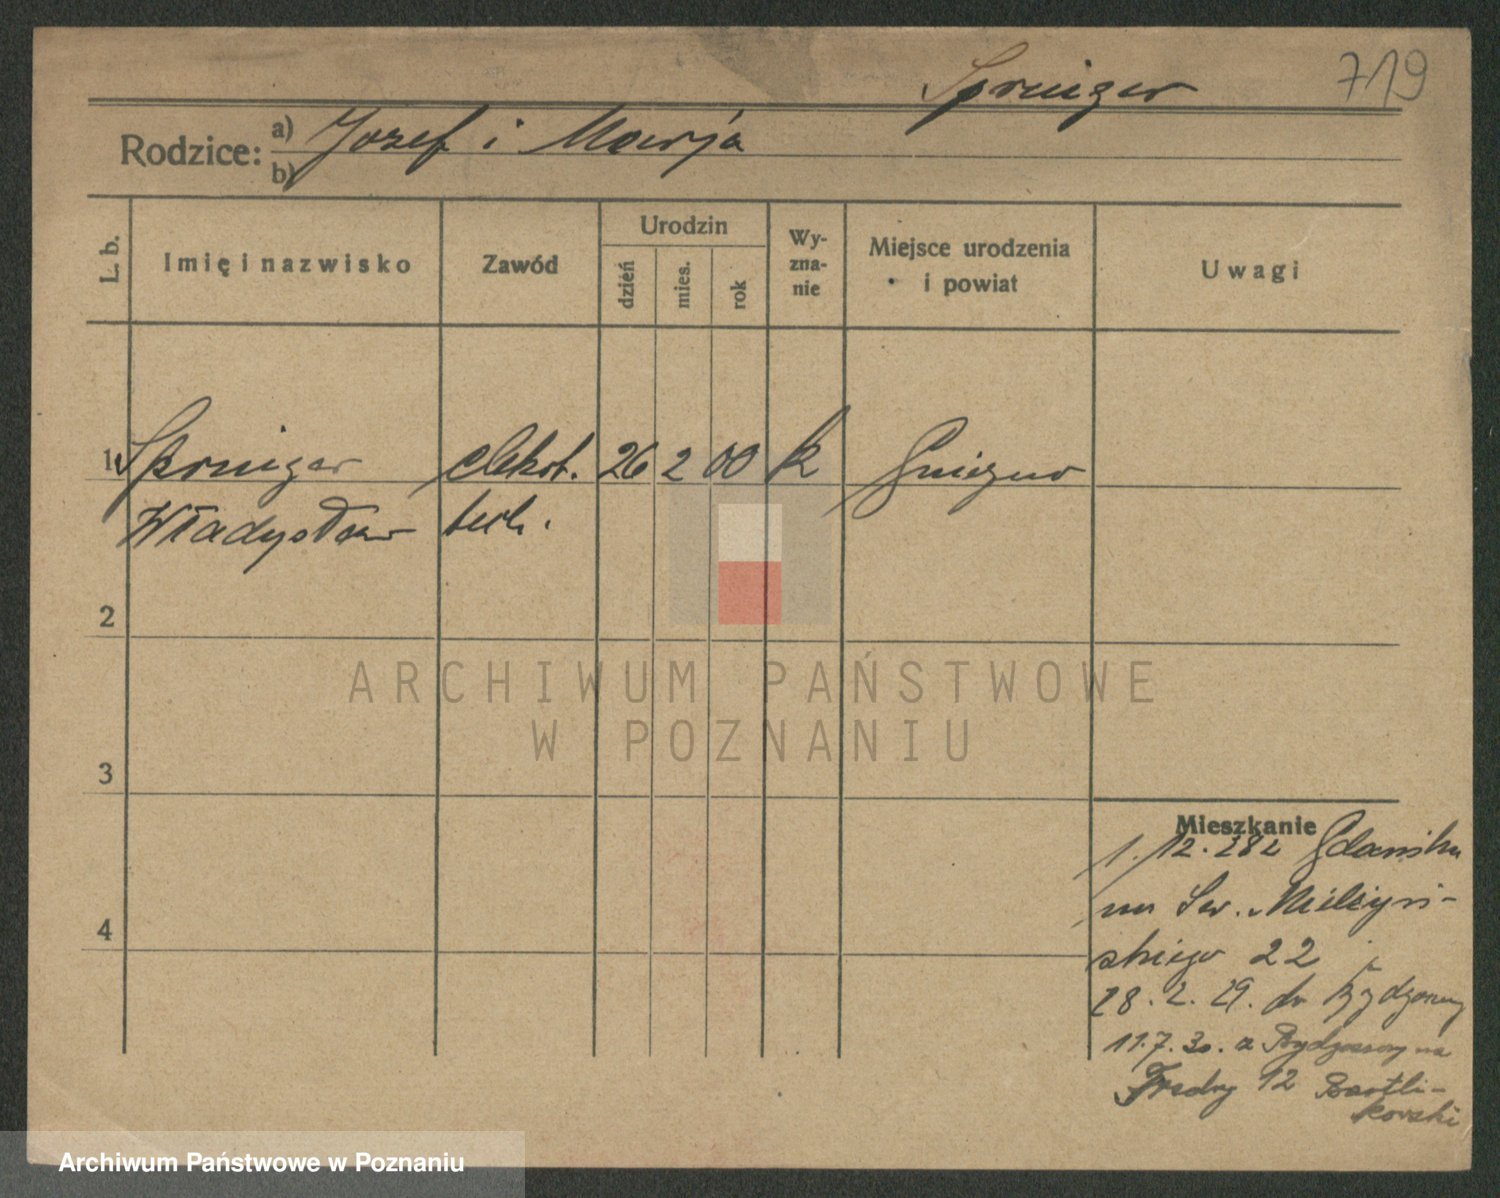 719
Sprenger
Rodzice: a) Jozef i Marja
b)
L. b.
Imię i nazwisko
Zawód
Urodzin
dzień
mies.
rok
Wy-
zna-
nie
Miejsce urodzenia
i powiat
Uwagi
1 Sprenger elekrot. 26 2 00 k Gniezno
Władysław tech.
2
3
4
Mieszkanie
1. 12. 28 z Gdańska
na Sew. Mielżyń-
skiego 22
28. 2. 29. do Bydgoszczy
11.7.30. z Bydgoszczy na
Fredry 12 Bartli-
kowski
ARCHIWUM PAŃSTWOWE
W POZNANIU
Archiwum Państwowe w Poznaniu